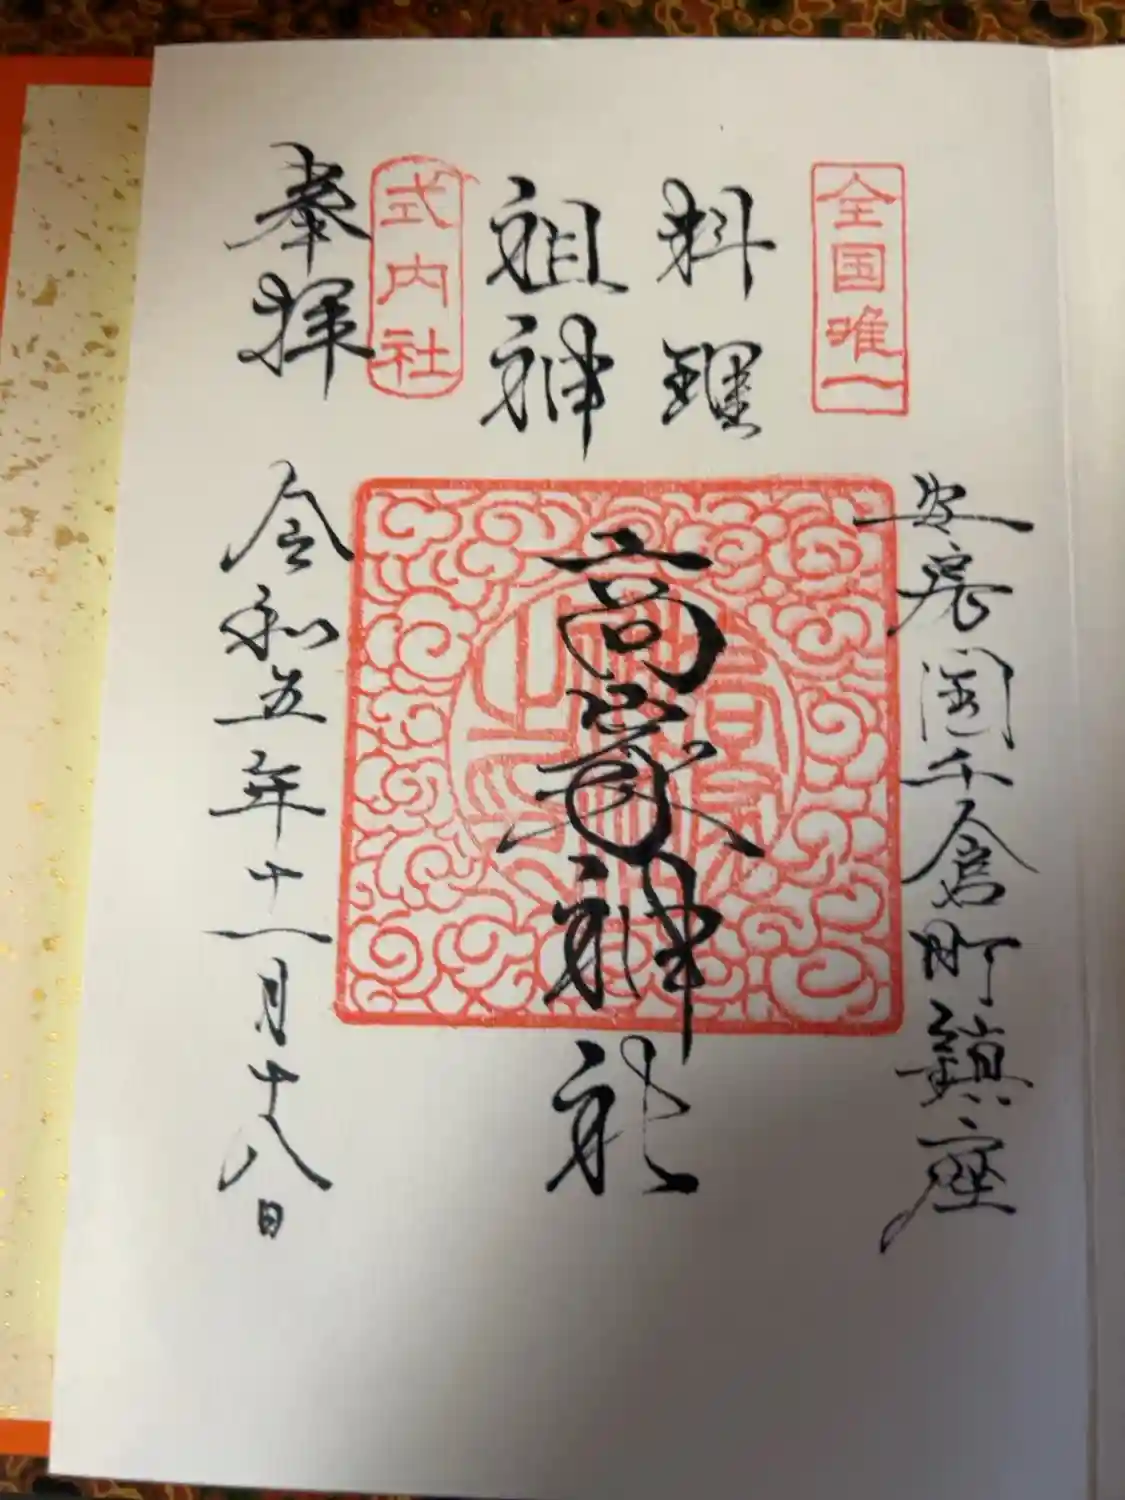 全国唯一
安房国千倉町鎮座
料理
祖神
高家神社
式内社
奉拝
令和五年十一月十八日